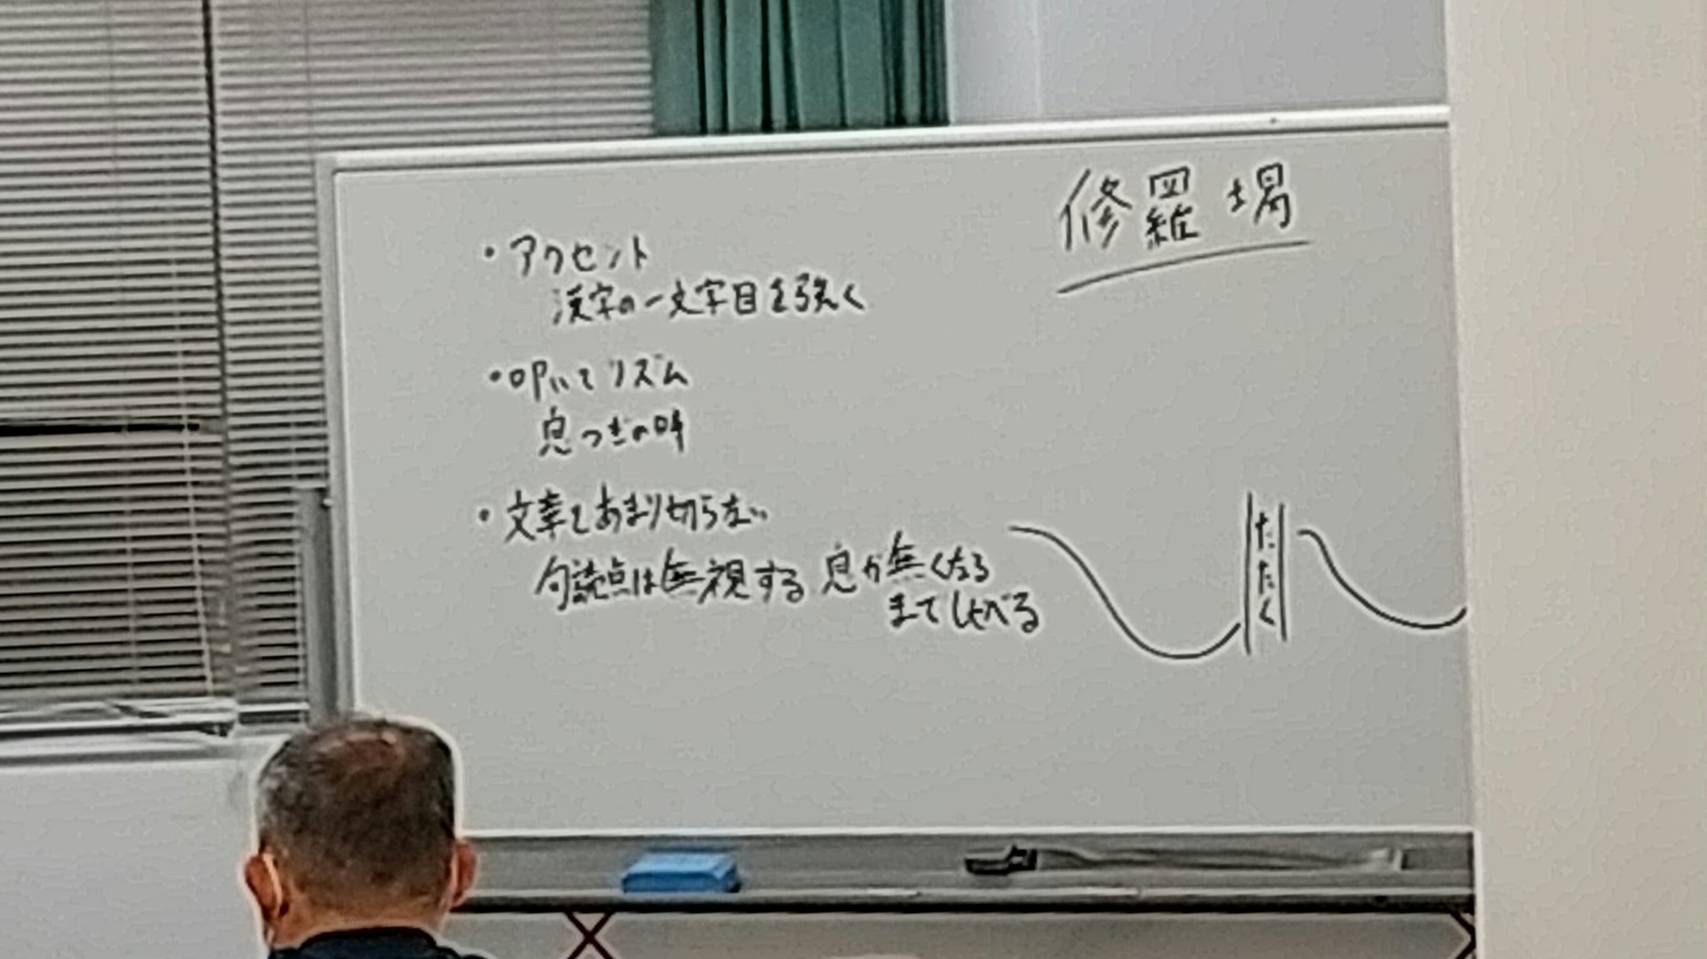 修羅場
・アクセント
漢字の一文字目を強く
・叩いてリズム
息つぎの時
・文章をあまり切らない
句読点は無視する 息が無くなる
までしゃべる
たたく